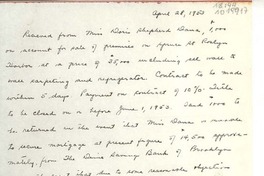 April 28, 1953
Received from Miss Doris Shepherd Dana, $1,000
on account for sale of premises on Spruce St Roslyn
Harbor at a price of $25,000 including all wall to
wall carpeting and refrigerator. Contract to be made
within 5 days. Payment on contract of 10%. Title
to be closed on or before June 1, 1953. Said $1000 to
be returned in the event that Miss Dana is unable
to secure mortgage at present figure of $14,500 approxi-
mately, from The Dime Savings Bank of Brooklyn
that due to some reasonable objection